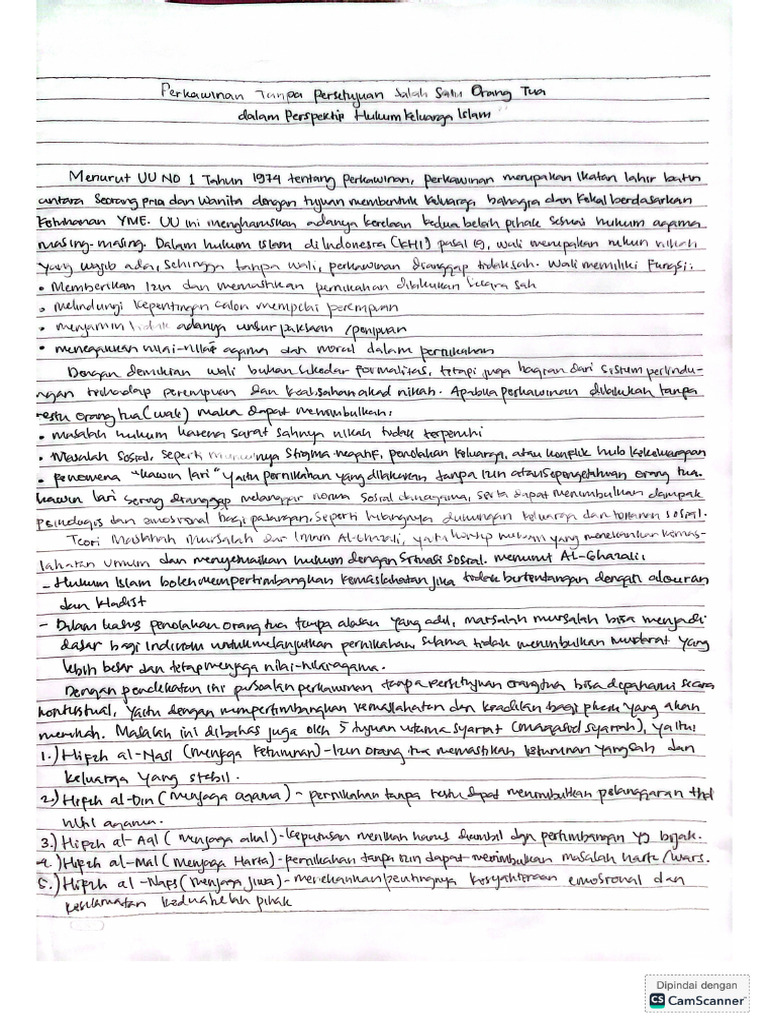 Perkawinan Tanpa Persetujuan Salah Satu Orang Tua
dalam Perspektif Hukum Keluarga Islam
Menurut UU NO 1 Tahun 1974 tentang perkawinan, perkawinan merupakan Ikatan lahir batin
antara Seorang pria dan Wanita dengan tujuan membentuk keluarga bahagia dan Kekal berdasarkan
Ketuhanan YME. UU ini mengharuskan adanya kerelaan kedua belah pihak sesuai hukum agama
masing-masing. Dalam hukum Islam di Indonesia (KHI) pasal 19, wali merupakan rukun nikah
yang wajib ada, sehingga tanpa wali, perkawinan dianggap tidak sah. Wali memiliki Fungsi:
• Memberikan Izin dan memastikan pernikahan dilakukan secara sah
• melindungi kepentingan calon mempelai perempuan
• menjamin tidak adanya unsur paksaan /penipuan
• menegakkan nilai-nilai agama dan moral dalam pernikahan
Dengan demikian wali bukan sekedar formalitas, tetapi juga bagian dari sistem perlindu-
ngan terhadap perempuan dan keabsahan akad nikah. Apabila perkawinan dilakukan tanpa
restu orang tua (wali) maka dapat menimbulkan:
• masalah hukum karena sarat sahnya nikah tidak terpenuhi
• Masalah sosial, seperti munculnya Stigma negatif, penolakan keluarga, atau konflik hub kekeluargaan
• Fenomena "kawin lari" yaitu pernikahan yang dilakukan tanpa izin atau Sepengetahuan orang tua.
kawin lari sering dianggap melanggar norma sosial dan agama, serta dapat menimbulkan dampak
psikologis dan emosional bagi pasangan, seperti hilangnya dukungan keluarga dan tekanan sosial.
Teori Maslahah Mursalah dari Imam Al-Ghazali, yaitu konsep hukum yang menekankan kemas-
lahatan umum dan menyesuaikan hukum dengan situasi sosial. menurut AL-Ghazali:
- Hukum Islam boleh mempertimbangkan kemaslahatan jika tidak bertentangan dengan alquran
dan Hadist
- Dalam kasus penolakan orang tua tanpa alasan yang adil, maslahah mursalah bisa menjadi
dasar bagi individu untuk melanjutkan pernikahan, selama tidak menimbulkan mudarat yang
lebih besar dan tetap menjaga nilai-nilai agama.
Dengan pendekatan ini persoalan perkawinan tanpa persetujuan orang tua bisa dipahami secara
kontekstual, yaitu dengan mempertimbangkan kemaslahatan dan keadilan bagi pihak yang akan
menikah. Masalah ini dibahas juga oleh 5 tujuan utama syariat (maqasid syariah), yaitu:
1.) Hifzh al-Nasl (menjaga keturunan) - Izin orang tua memastikan keturunan yang sah dan
keluarga yang stabil.
2.) Hifzh al-Din (menjaga agama) - pernikahan tanpa restu dapat menimbulkan pelanggaran thd
nilai agama.
3.) Hifzh al-Aql (menjaga akal) - keputusan menikah harus diambil dgn pertimbangan yg bijak.
4.) Hifzh al-Mal (menjaga Harta) - pernikahan tanpa izin dapat menimbulkan masalah harta/waris.
5.) Hifzh al-Nafs (menjaga jiwa) - menekankan pentingnya kesejahteraan emosional dan
keselamatan kedua belah pihak
Dipindai dengan
CS CamScanner